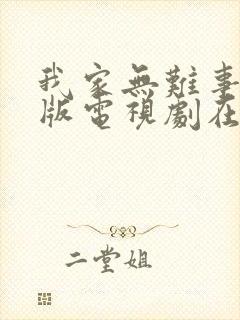 我家無難事
版電視劇在
二堂姐